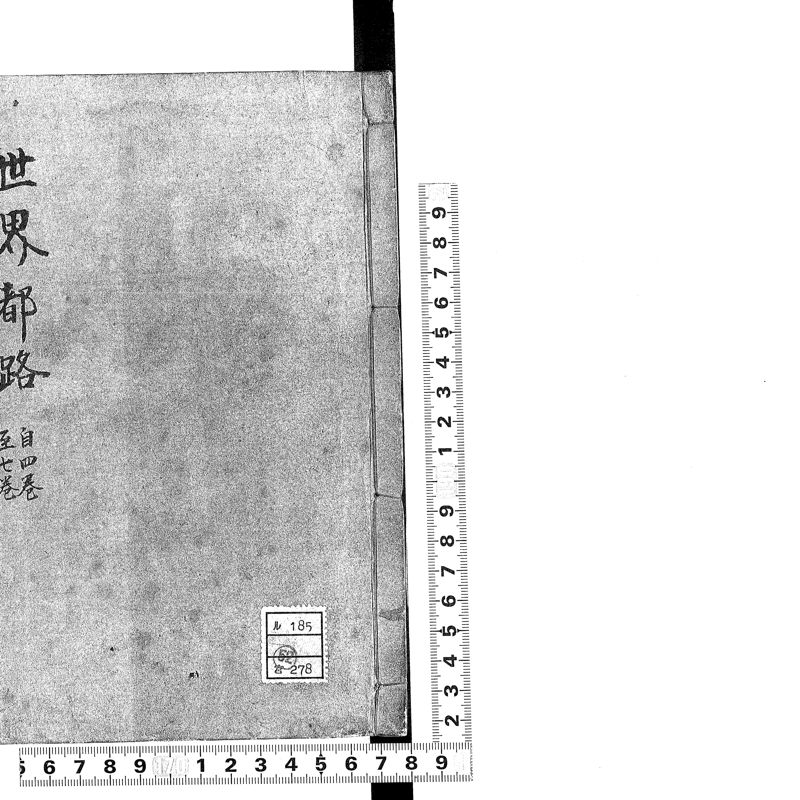 世界都路
自四巻
至七巻
ル 185
52
278
9
8
7
6
5
4
3
2
1
9
8
7
6
5
4
3
2
6 7 8 9 1 2 3 4 5 6 7 8 9